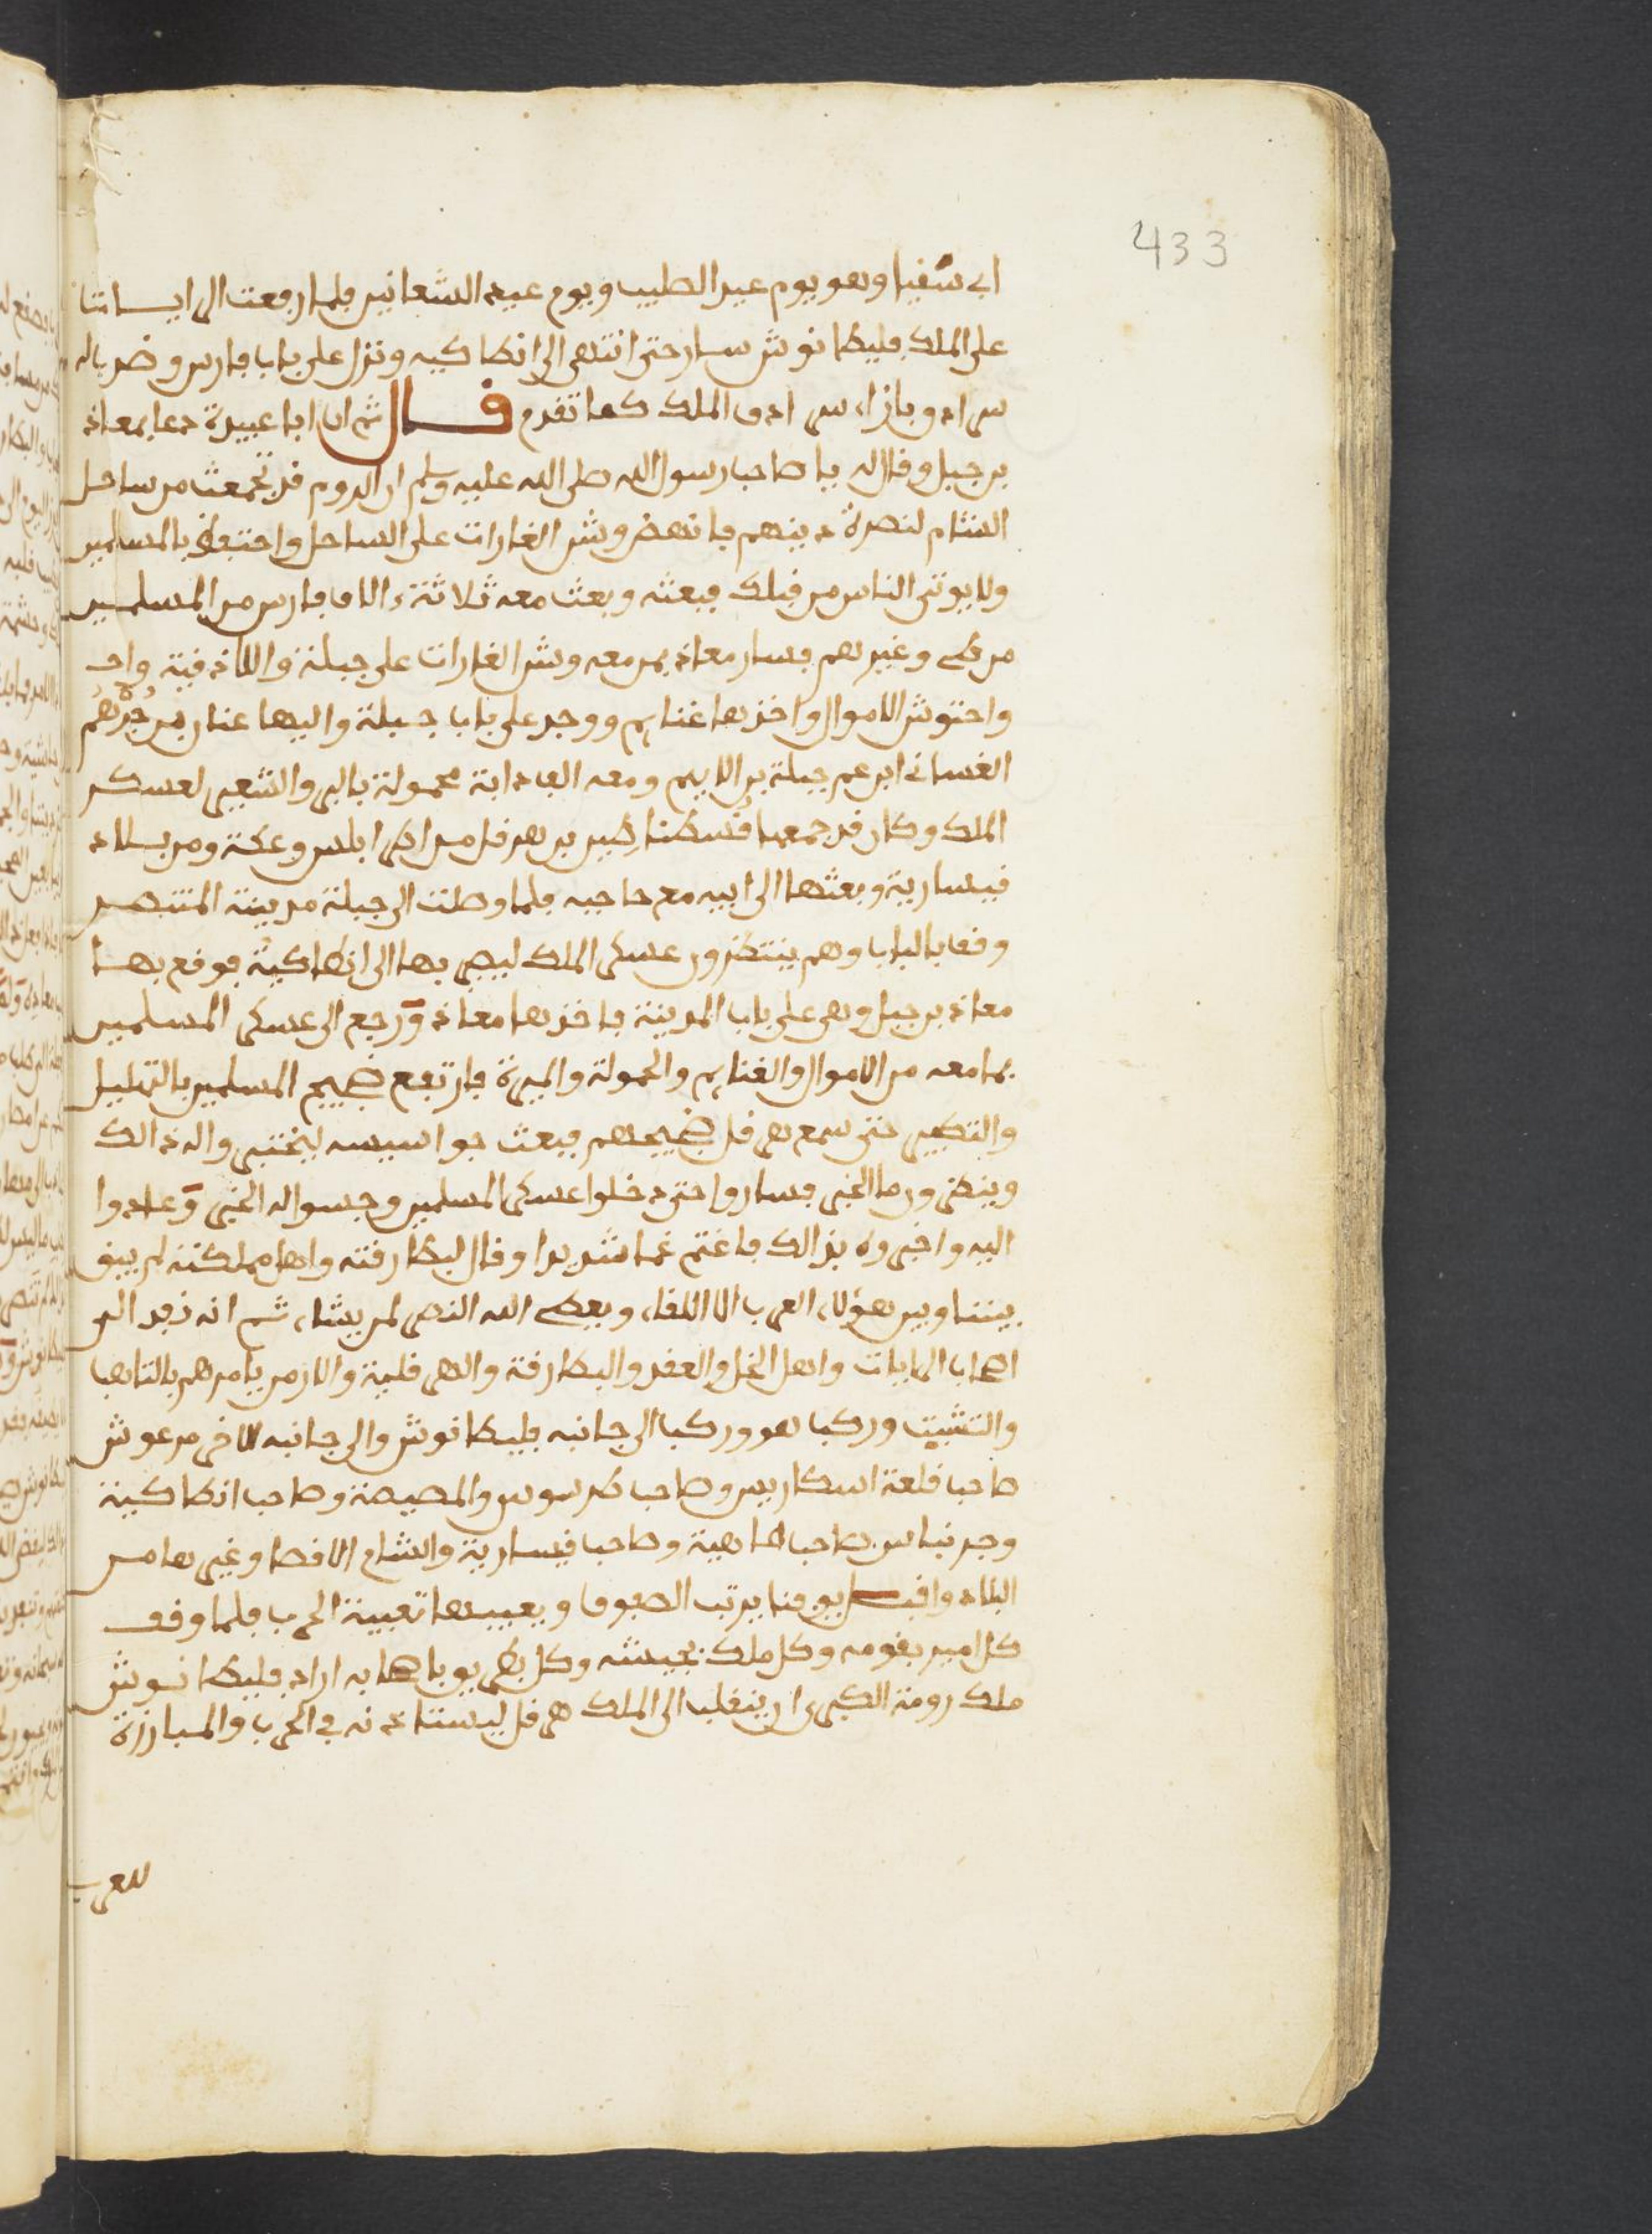 433
ابى شفيا وهو يوم عيد الصليب ويوم عيد الشعانين فلما رفعت الى ايساتنا
على الملك فليطانوش سار حتى انتهى الى انطاكيه ونزل على باب فارس وضرب له
سرادق بازاء سرادق الملك كما تقدم قال ثم ان ابا عبيدة دعا بمعاذ
بن جبل وقال له يا صاحب رسول الله صلى الله عليه وسلم ان الروم قد تجمعت من ساحل
الشام لنصرة دينهم فانهض وشن الغارات على الساحل واحتفظ بالمسلمين
ولا يوتى الناس من قبلك فبعثه وبعث معه ثلاثة ءالاف فارس من المسلمين
من طى وغيرهم فسار معاذ بمن معه وشن الغارات على جبلة واللاذقية
واحتوش الاموال واخذها غنايم ووجد على باب جبلة واليها عنان بن جرهم
الغساني ابن عم جبلة بن الايهم ومعه الف دابة محمولة بالبر والشعير لعسكر
الملك وكان قد جمعها قسطنطين بن هرقل من اطرابلس وعكة ومن بلاد
قيسارية وبعثها الى ابيه مع حاجبه فلما وصلت الى جبلة مدينة المتنصر
وقفا بالباب وهم ينتظرون عسكر الملك ليجى بها الى انطاكية فوقع بها
معاذ بن جبل وهى على باب المدينة فاخذها معاذ ورجع الى عسكر المسلمين
بما معه من الاموال والغنايم والحمولة والميرة فارتفع ضجيج المسلمين بالتهليل
والتكبير حتى سمع هرقل ضجيجهم فبعث جواسيسه ليختبروا له ذالك
وينظرون ما الخبر فساروا حتى دخلوا عسكر المسلمين وجسوا له الخبر وعادوا
اليه واخبروه بذالك فاغتم غما شديدا وقال لبطارقته واهل مملكته لم يبق
بيننا وبين هؤلاء العرب الا اللقاء ويعطى الله النصر لمن يشاء ثم انه نفد الى
اصحاب الرايات واهل الحل والعقد والبطارقة والهرقلية والارمن يامرهم بالتاهب
والتثبيت وركب هو وركب الى جانبه فليطانوش والى جانبه الاخر مرعوش
صاحب قلعة اسطاريس وصاحب طرسوس والمصيصة وصاحب انطاكية
وجرنباس صاحب لهاهية وصاحب قيسارية والشام الاقصا وغيرها من
البلاد واقبل يوقنا يرتب الصفوف ويعبيها تعبية الحرب فلما وقف
كل امير بقومه وكل ملك بجيشه وكل بطريق باصحابه اراد فليطانوش
ملك رومة الكبرى ان ينقلب الى الملك هرقل ليستاذنه في الحرب والمبارزة
للعرب